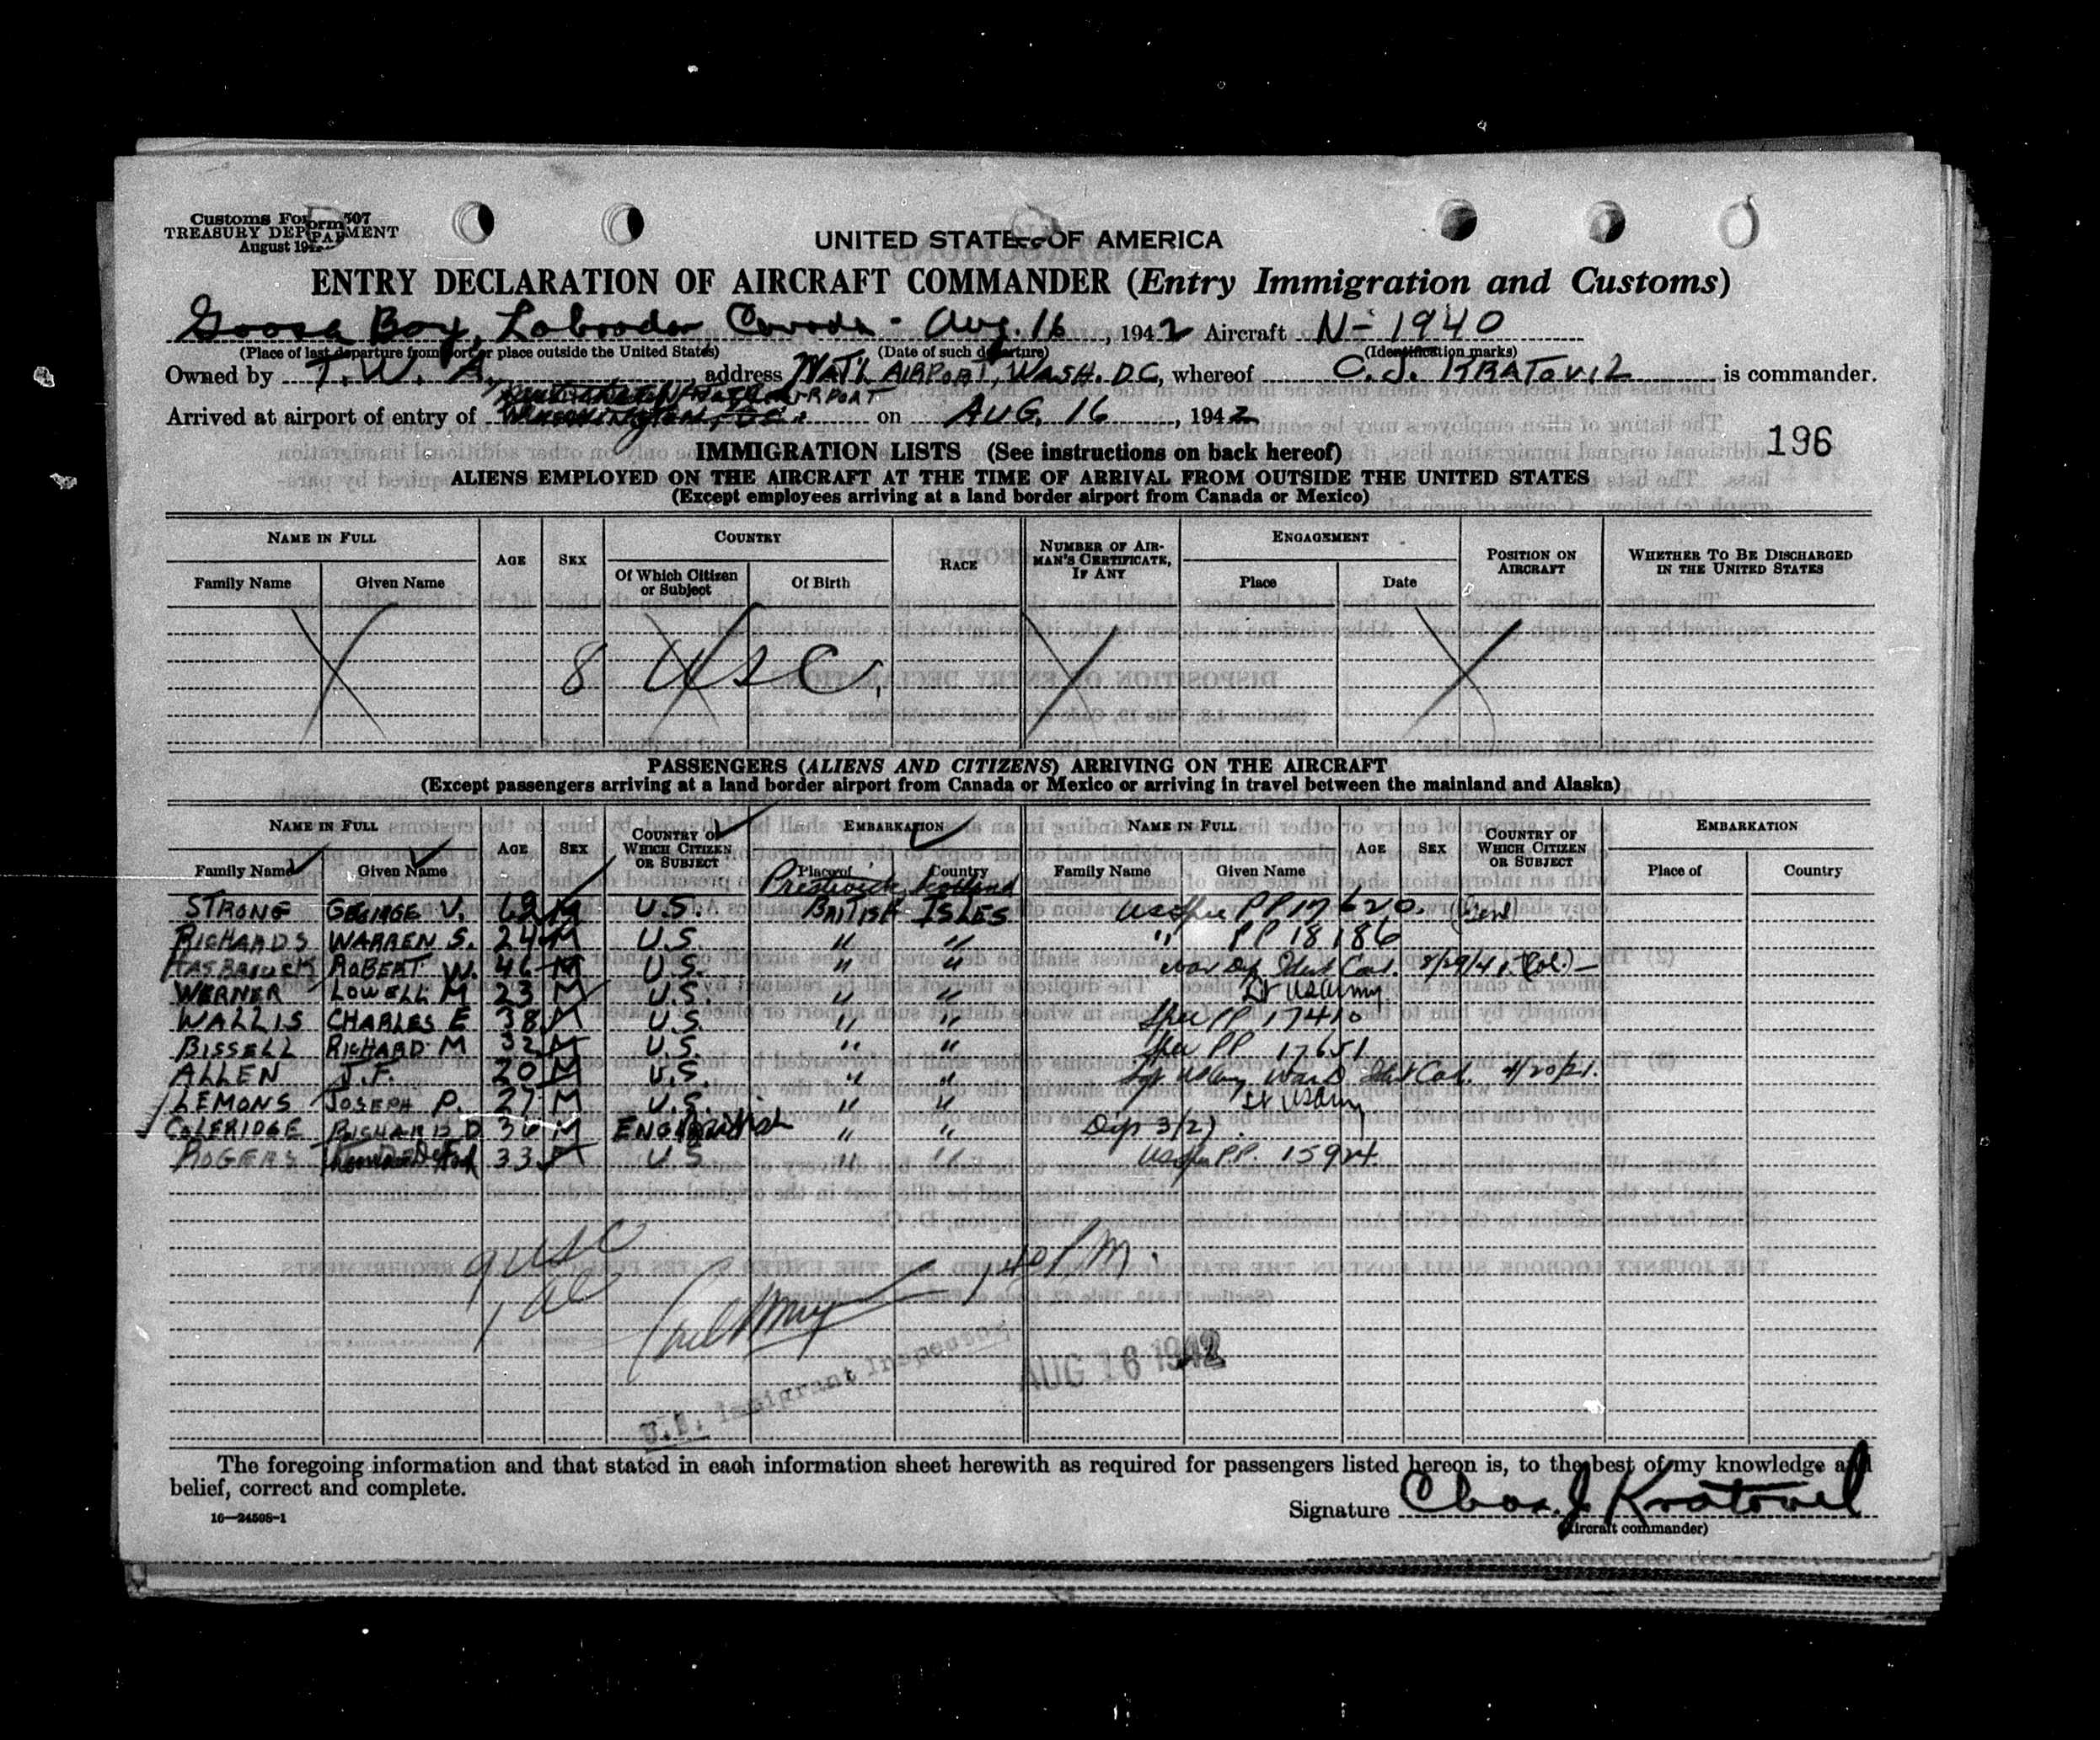 Customs Form 507
TREASURY DEPARTMENT
August 19
UNITED STATES OF AMERICA
ENTRY DECLARATION OF AIRCRAFT COMMANDER (Entry Immigration and Customs)
Goose Bay, Labrador Canada - Aug. 16, 1942 Aircraft N-1940
(Place of last departure from port or place outside the United States) (Date of such departure) (Identification marks)
Owned by T. W. A. address NAT'L AIRPORT, WASH. D.C, whereof C. J. KRATOVIL is commander.
AIRPORT
Arrived at airport of entry of Washington, D.C. on AUG. 16, 1942
196
IMMIGRATION LISTS (See instructions on back hereof)
ALIENS EMPLOYED ON THE AIRCRAFT AT THE TIME OF ARRIVAL FROM OUTSIDE THE UNITED STATES
(Except employees arriving at a land border airport from Canada or Mexico)
NAME IN FULL AGE SEX COUNTRY RACE NUMBER OF AIRMAN'S CERTIFICATE, IF ANY ENGAGEMENT POSITION ON AIRCRAFT WHETHER TO BE DISCHARGED IN THE UNITED STATES
Family Name Given Name Of Which Citizen or Subject Of Birth Place Date
8 USC.
PASSENGERS (ALIENS AND CITIZENS) ARRIVING ON THE AIRCRAFT
(Except passengers arriving at a land border airport from Canada or Mexico or arriving in travel between the mainland and Alaska)
NAME IN FULL AGE SEX COUNTRY OF WHICH CITIZEN OR SUBJECT EMBARKATION NAME IN FULL AGE SEX COUNTRY OF WHICH CITIZEN OR SUBJECT EMBARKATION
Family Name Given Name Place of Country Family Name Given Name Place of Country
Prestwick, Scotland
STRONG GEORGE V. 62 M U.S. BRITISH ISLES PP 17620.
RICHARDS WARREN S. 24 M U.S. " " " PP 18186
HASBROUCK ROBERT W. 46 M U.S. " " War Dep Ident Card. 8/29/41 (Col.) -
WERNER LOWELL M 23 M U.S. " " Lt US Army
WALLIS CHARLES E 38 M U.S. " " Spec PP 17410
BISSELL RICHARD M 32 M U.S. " " Spec PP 17651
ALLEN J.F. 20 M U.S. " " Sgt US Army War D Ident Card.
LEMONS JOSEPH P. 27 M U.S. " " Lt US Army
COLERIDGE RICHARD D 36 M ENG British " " Dip 3/2)
ROGERS 33 M U.S " " PP. 15924.
9 USC
1 al
1,40 P.M.
U.S. Immigrant Inspector
AUG 16 1942
The foregoing information and that stated in each information sheet herewith as required for passengers listed hereon is, to the best of my knowledge and
belief, correct and complete.
Signature Chas. J Kratovil
(Aircraft commander)
16—24508-1